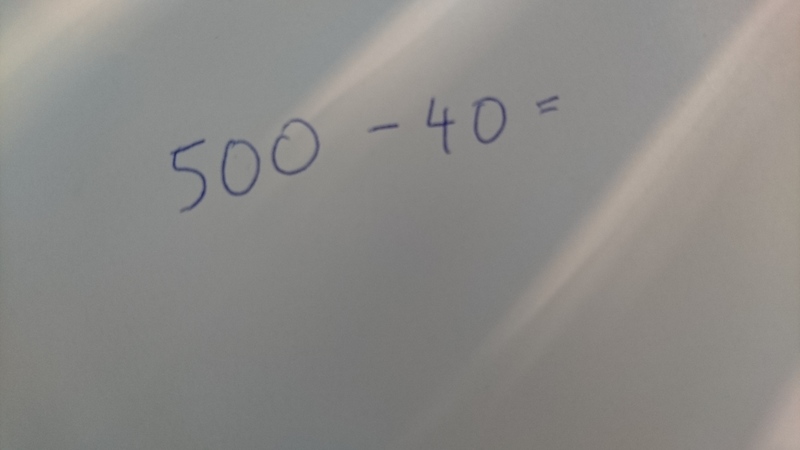 500 - 40 =